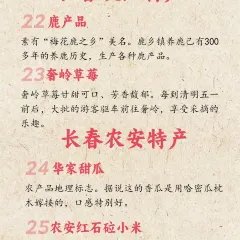 22鹿产品
素有“梅花鹿之乡”美名。鹿乡镇养鹿已有300
多年的养鹿历史，生产各种鹿产品。
23奢岭草莓
奢岭草莓甘甜可口、芳香馥郁。每到清明五一
前后，大批的游客驱车前往奢岭，享受采摘的
乐趣。
长春农安特产
24华家甜瓜
农产品地理标志。据说这的香瓜是用哈密瓜枕
木嫁接的，口感特别好。
25农安红石砬小米